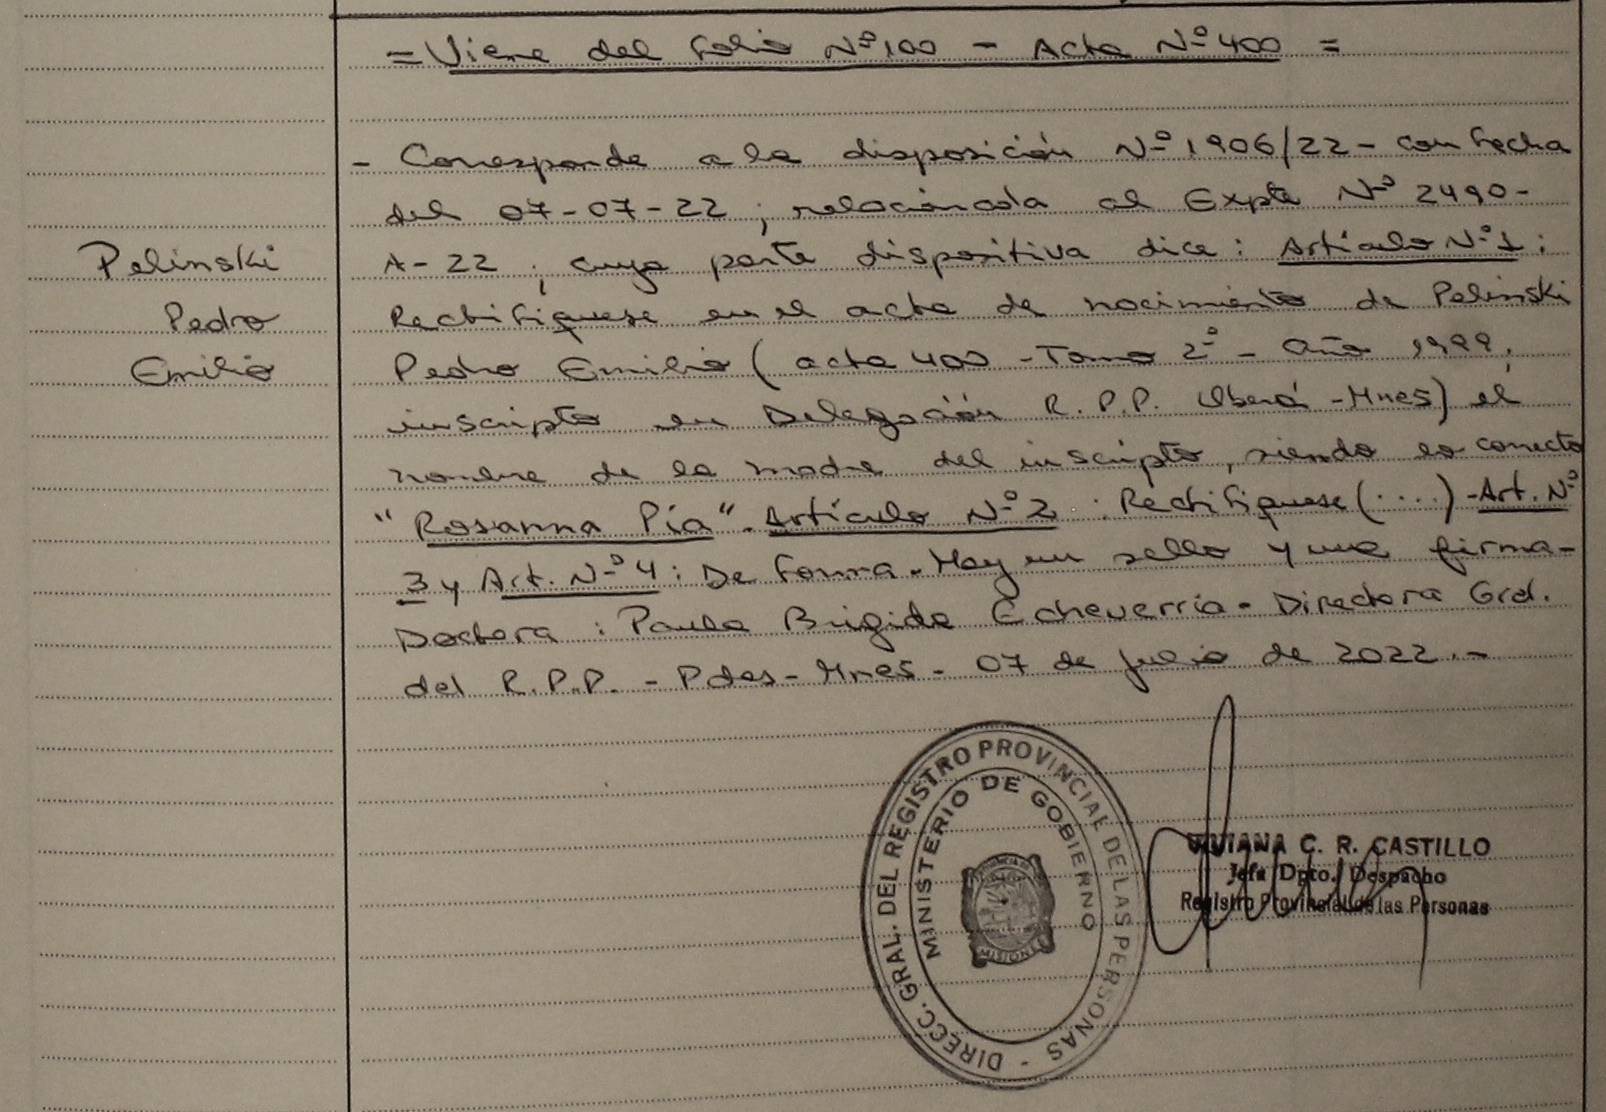 = Viene del Folio Nº 100 - Acta Nº 400 =
- Corresponde a la disposición Nº 1906/22 - con fecha
del 07-07-22 ; relacionada al Expte Nº 2490-
A-22 ; cuya parte dispositiva dice : Artículo Nº 1 :
Rectifíquese en el acta de nacimiento de Pelinski
Pedro Emilio ( acta 400 - Tomo 2º - Año 1999,
inscripto en Delegación R.P.P. Oberá - Mnes) el
nombre de la madre del inscripto, siendo lo correcto
"Rosanna Pía". Artículo Nº 2 : Rectifíquese (....) - Art. Nº
3 y Art. Nº 4 : De forma. Hay un sello y una firma -
Doctora : Paula Brigida Echeverria - Directora Gral.
del R.P.P. - Pdas - Mnes - 07 de julio de 2022.-
Pelinski
Pedro
Emilio
DIRECC. GRAL. DEL REGISTRO PROVINCIAL DE LAS PERSONAS -
MINISTERIO DE GOBIERNO
MISIONES
VIVIANA C. R. CASTILLO
Jefa Dpto. Despacho
Registro Provincial de las Personas